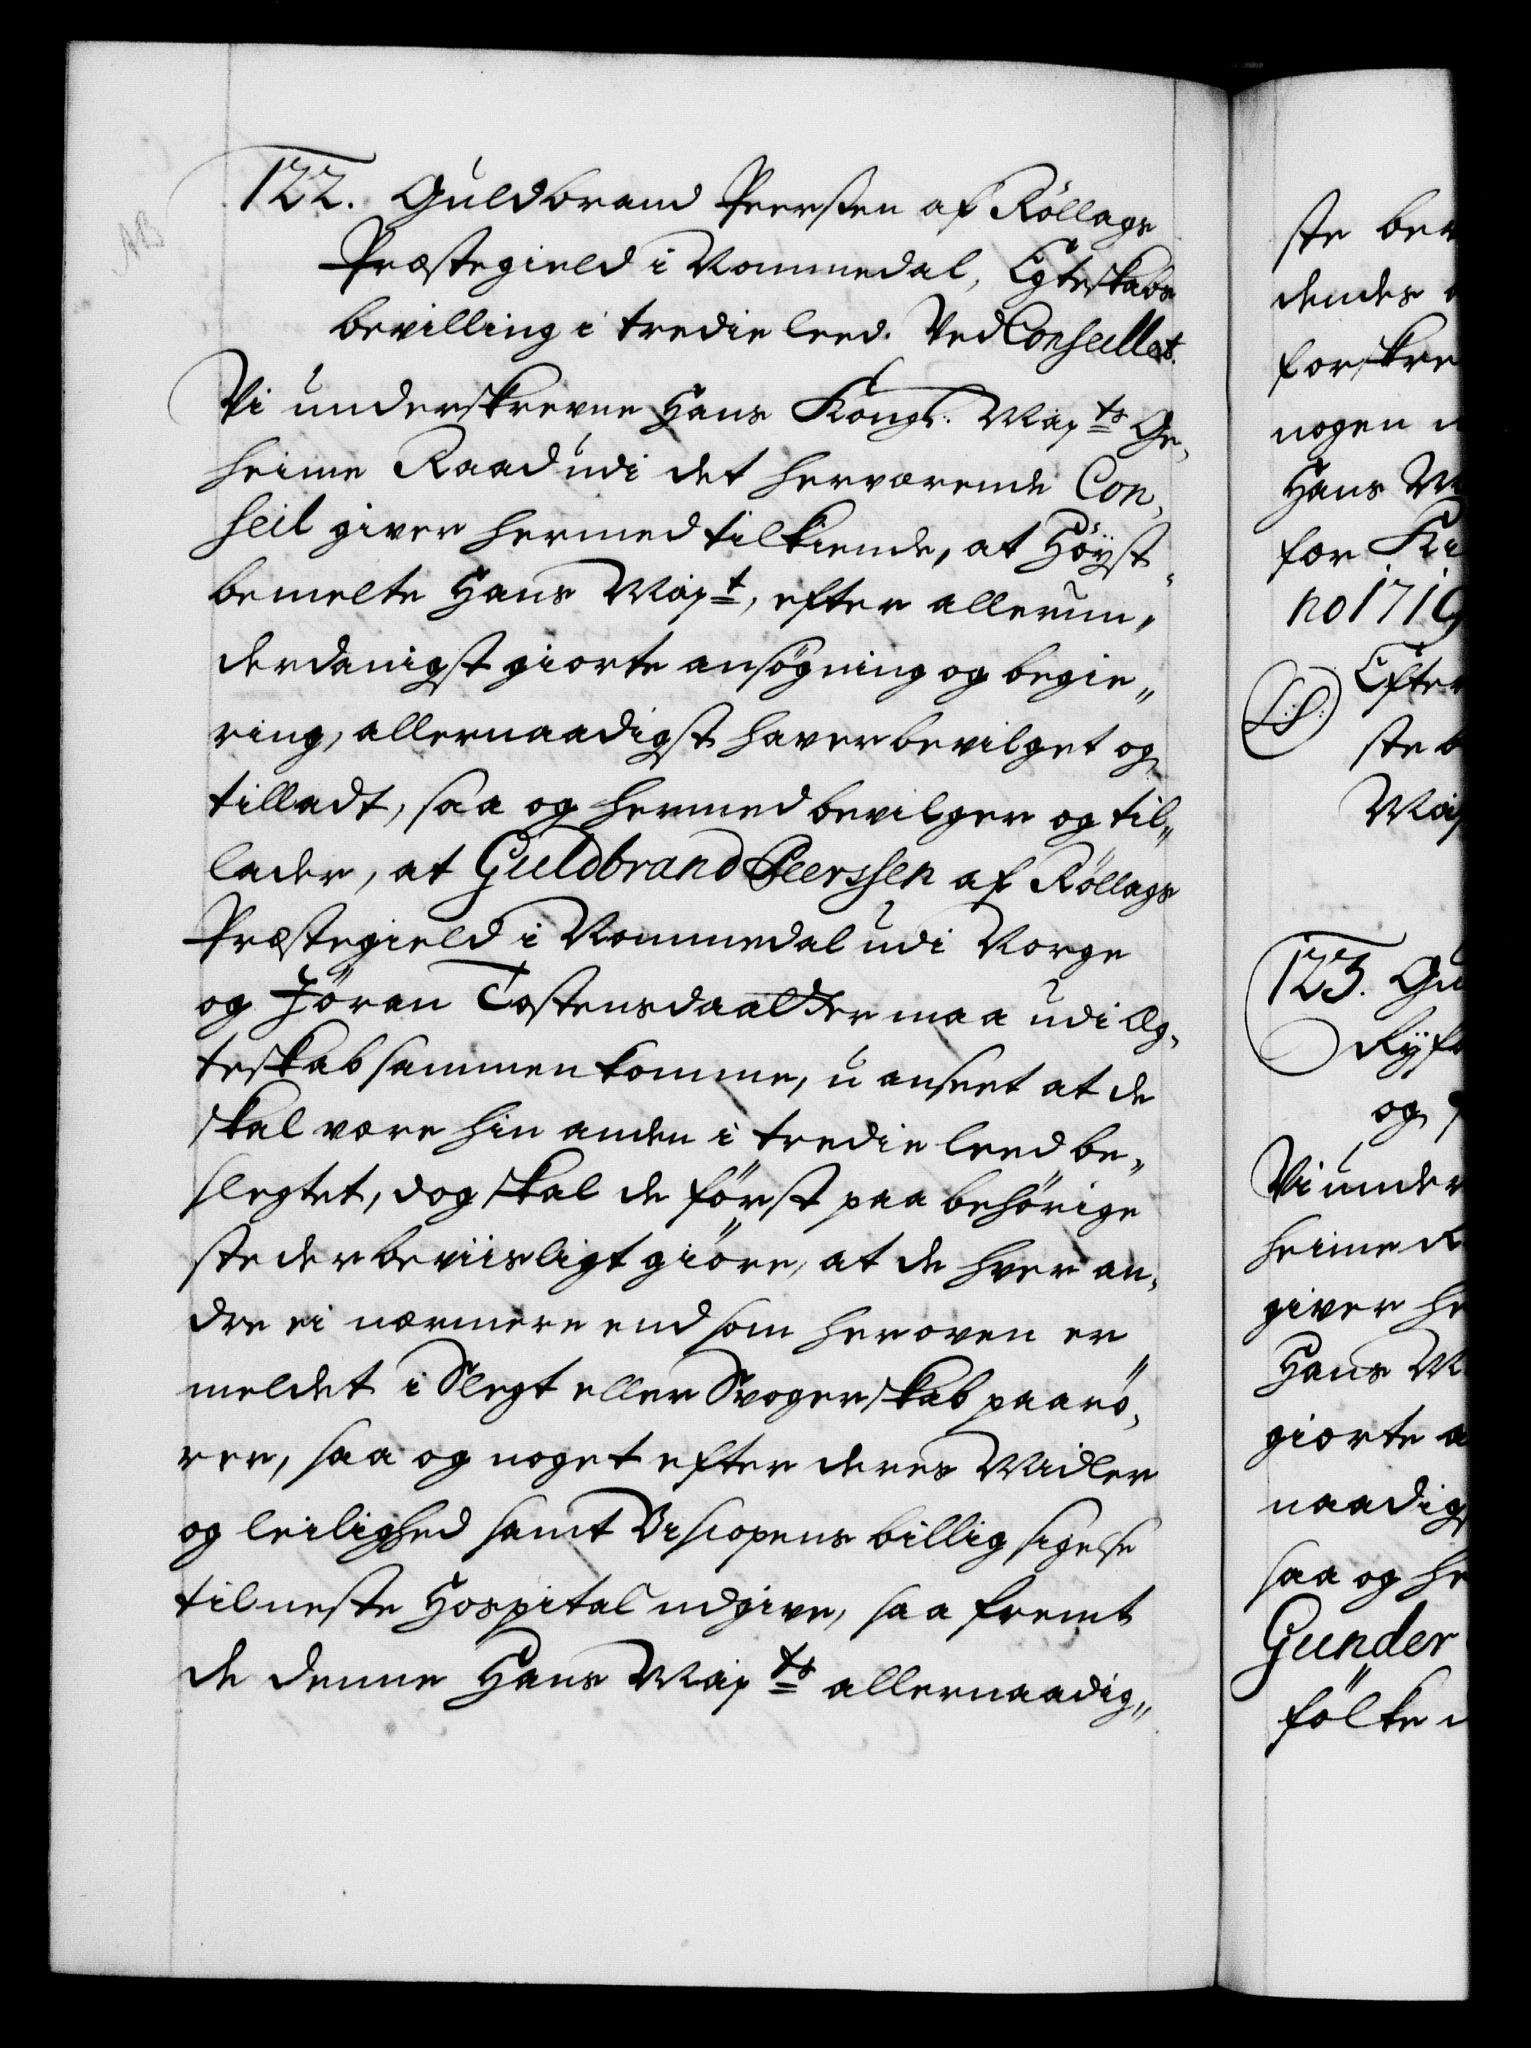 122. Guldbrand Peersen af Röllags
Præstegield i Nommedal, Egteskabs
bevilling i tredie leed. Ved Conseillet.
Vi underskrevne Hans Kongl: Maj.ts Ge,
heime Raad udi det herværende Con,
seil giver hermed tilkiende, at Höyst,
bemelte Hans Maj.t, efter allerun„
derdanigst giorte ansögning og begie„
ring, allernaadigst haver bevilget og
tilladt, saa og hermed bevilger og til„
lader, at Guldbrand Peerssen af Röllags
Præstegield i Nommedal udi Norge
og Jöran Tostensdaatter maa udi Æg,
teskab sammen komme, u anseet at de
skal være hin anden i tredie leed be„
slegtet, dog skal de först paa behörige
steder beviisligt giöre, at de hver an,
dre ei nærmere end som her oven er
meldet i Slegt eller Svogerskab paarö,
rer, saa og noget efter deres Midler
og leilighed samt Biscopens billig sigelse
til neste Hospital udgive, saa fremt
de denne Hans Maj.ts allernaadig„
AB
ste
dendes
forskre
nogen
Hans
for
no 1719
L.S.
Efter
ste
Maj
123. Gu
Ryf
og
Vi under
heime R
giver he
Hans M
giorte a
naadigs
saa og he
Gunder
fölke